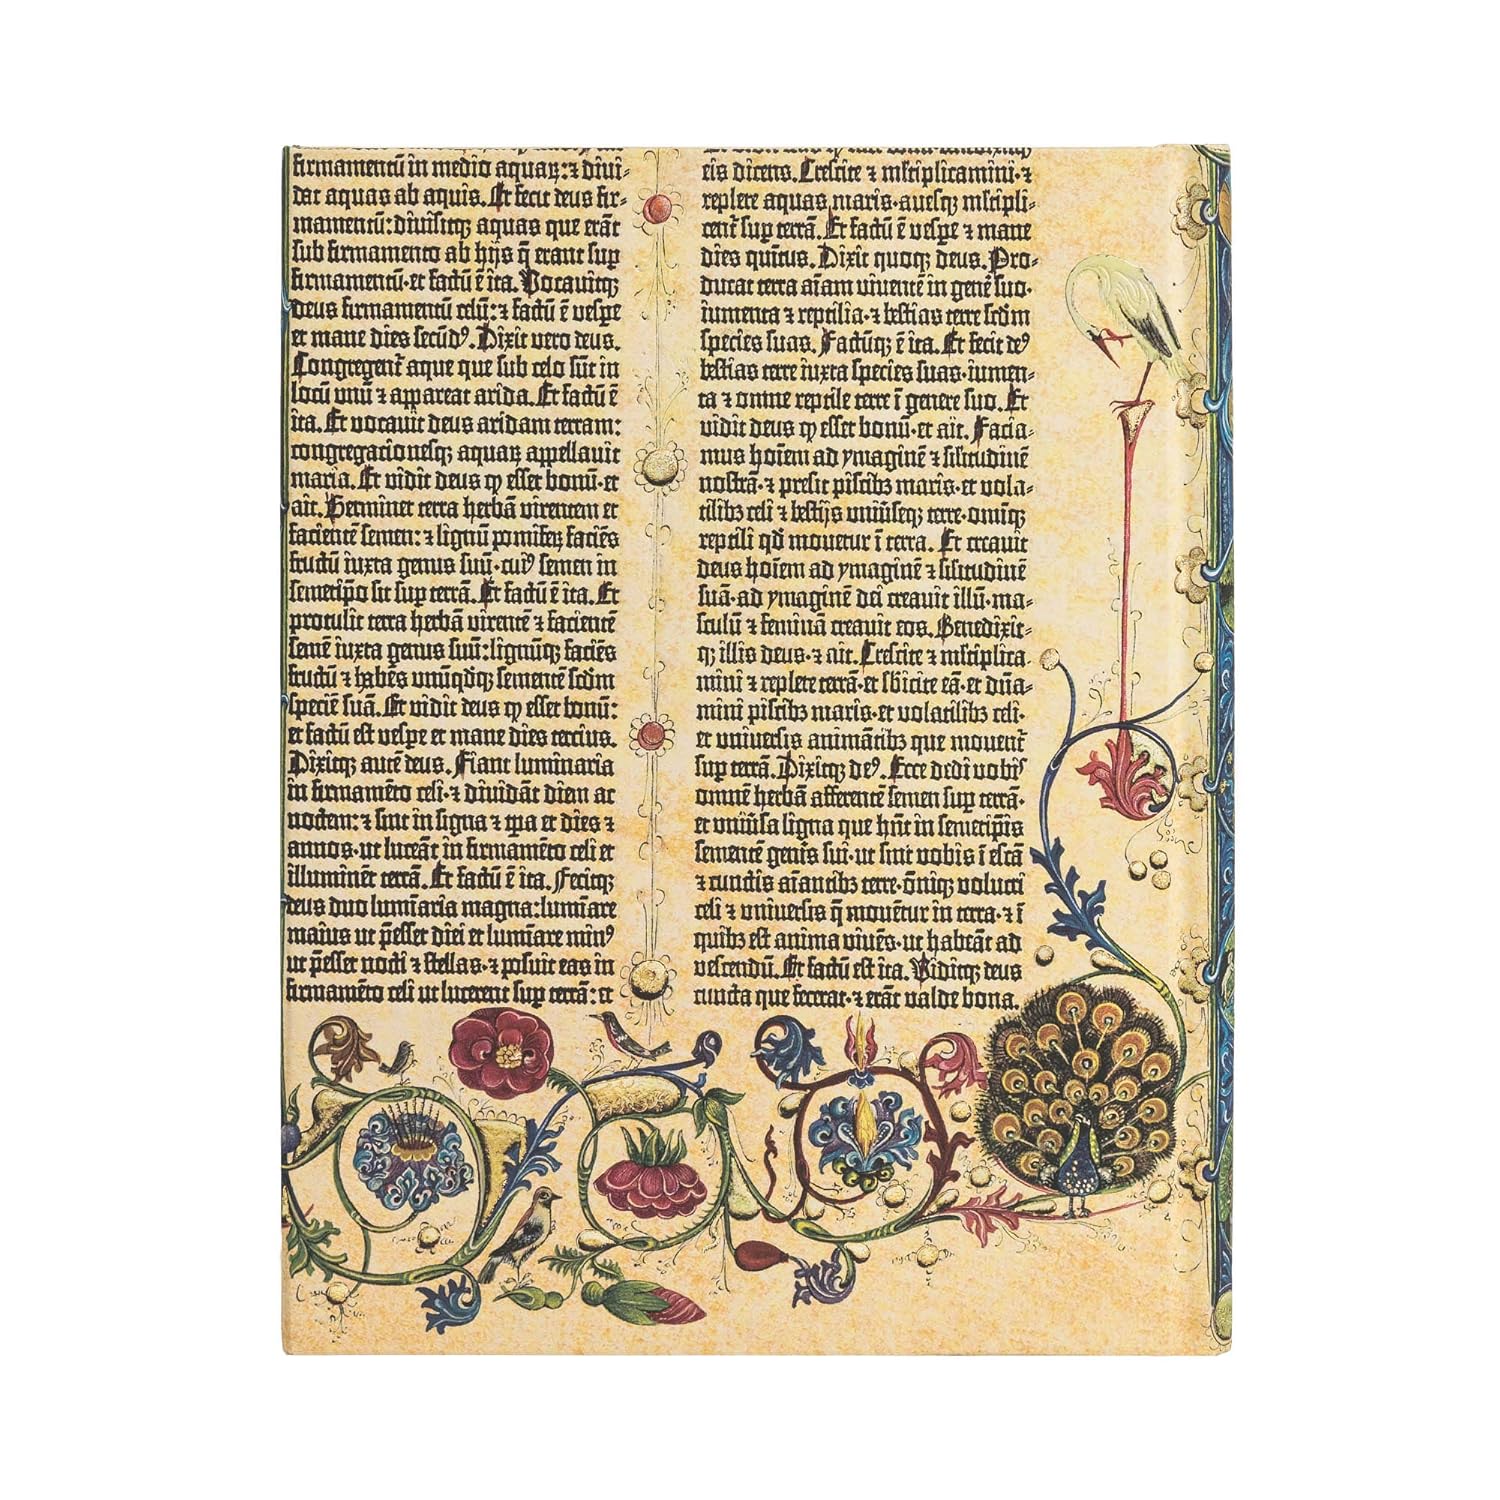 firmamentū in medio aquaꝝ: ⁊ divi-
dat aquas ab aquis. Et fecit deus fir-
mamentū: divisitqꝫ aquas que erāt
sub firmamento ab hijs q̄ erant suꝑ
firmamentū· et factū ē ita. Vocavitqꝫ
deus firmamentū celū: ⁊ factū ē vespe
et mane dies secūdꝰ. Dixit vero deus.
Congregent᷑ aque que sub celo sūt in
locū unū ⁊ appareat arida. Et factū ē
ita. Et vocavit deus aridam terram:
congregacionesqꝫ aquaꝝ appellavit
maria. Et vidit deus ꝙ esset bonū· et
ait. Germinet terra herbā virentem et
facientē semen: ⁊ lignū pomifeꝝ faciēs
fructū iuxta genus suū· cuiꝰ semen in
semetip̄o sit suꝑ terrā. Et factū ē ita. Et
protulit terra herbā virentē ⁊ facientē
semē iuxta genus suū: lignūqꝫ faciēs
fructū ⁊ habēs unūqd̄qꝫ sementē scd̄m
speciē suā. Et vidit deus ꝙ esset bonū:
et factū est vespe et mane dies tercius.
Dixitqꝫ autē deus. Fiant luminaria
in firmamēto celi· ⁊ dividāt diem ac
noctem: ⁊ sint in signa ⁊ tp̄a et dies ⁊
annos· ut luceāt in firmamēto celi et
illuminēt terrā. Et factū ē ita. Fecitqꝫ
deus duo lumīaria magna: lumīare
maius ut p̄esset diei et lumīare minꝰ
ut p̄esset nocti ⁊ stellas· ⁊ posuit eas in
firmamēto celi ut lucerent suꝑ terrā: et
eis dicens. Crescite ⁊ ml̄tiplicamini· ⁊
replete aquas maris· avesqꝫ ml̄tipli-
cent᷑ suꝑ terrā. Et factū ē vespe ⁊ mane
dies quītus. Dixit quoqꝫ deus. Pro-
ducat terra aīam viventē in genē suo·
iumenta ⁊ reptilia· ⁊ bestias terre scd̄m
species suas. Factūqꝫ ē ita. Et fecit deꝰ
bestias terre iuxta species suas· iumen-
ta ⁊ omne reptile terre ī genere suo. Et
vidit deus ꝙ esset bonū· et ait. Facia-
mus hoīem ad ymaginē ⁊ sil̄itudinē
nostrā· ⁊ presit piscibꝫ maris· et vola-
tilibꝫ celi ⁊ bestijs univ̄seqꝫ terre· omīqꝫ
reptili qd̄ movetur ī terra. Et creavit
deus hoīem ad ymaginē ⁊ sil̄itudinē
suā· ad ymaginē dei creavit illū· ma-
sculū ⁊ feminā creavit eos. Benedixit-
qꝫ illis deus· ⁊ ait. Crescite ⁊ ml̄tiplica-
mini ⁊ replete terrā· et sb̄icite eā· et dn̄a-
mini piscibꝫ maris· et volatilibꝫ celi·
et universis animātibꝫ que movent᷑
suꝑ terrā. Dixitqꝫ deꝰ. Ecce dedi vobis
omnē herbā afferentē semen suꝑ terrā·
et univ̄sa ligna que hn̄t in semetip̄is
sementē genīs sui· ut sint vobis ī escā
⁊ cunctis aīantibꝫ terre· ōniqꝫ volucri
celi ⁊ universis q̄ movētur in terra· ⁊ ī
quibꝫ est anima vivēs· ut habeāt ad
vescendū. Et factū est ita. Viditqꝫ deus
cuncta que fecerat· ⁊ erāt valde bona.